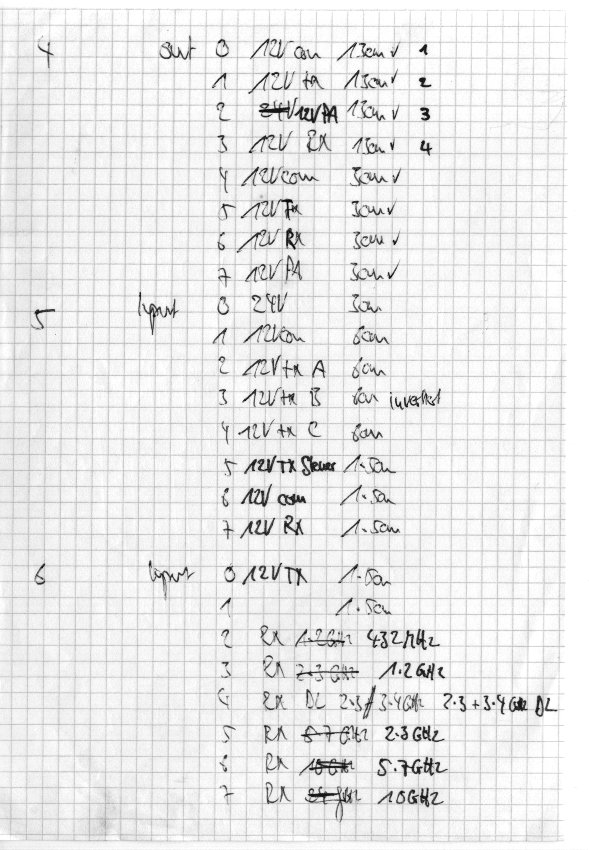 4 0 12V con 13cm ✓ 1
1 12V tx 13cm ✓ 2
2 24V 12V PA 13cm ✓ 3
3 12V RX 13cm ✓ 4
4 12V com 3cm ✓
5 12V TX 3cm ✓
6 12V RX 3cm ✓
7 12V PA 3cm ✓
5 Input 0 24V 3cm
1 12V com 6cm
2 12V tx A 6cm
3 12V tx B 6cm invertiert
4 12V tx C 6cm
5 12V TX 1.5cm
6 12V com 1.5cm
7 12V RX 1.5cm
6 Input 0 12V TX 1.5cm
1 1.5cm
2 RX 1.2GHz 432MHz
3 RX 2.3GHz 1.2GHz
4 RX DL 2.3/3.4GHz 2.3+3.4GHz DL
5 RX 5.7GHz 2.3GHz
6 RX 10GHz 5.7GHz
7 RX 10GHz